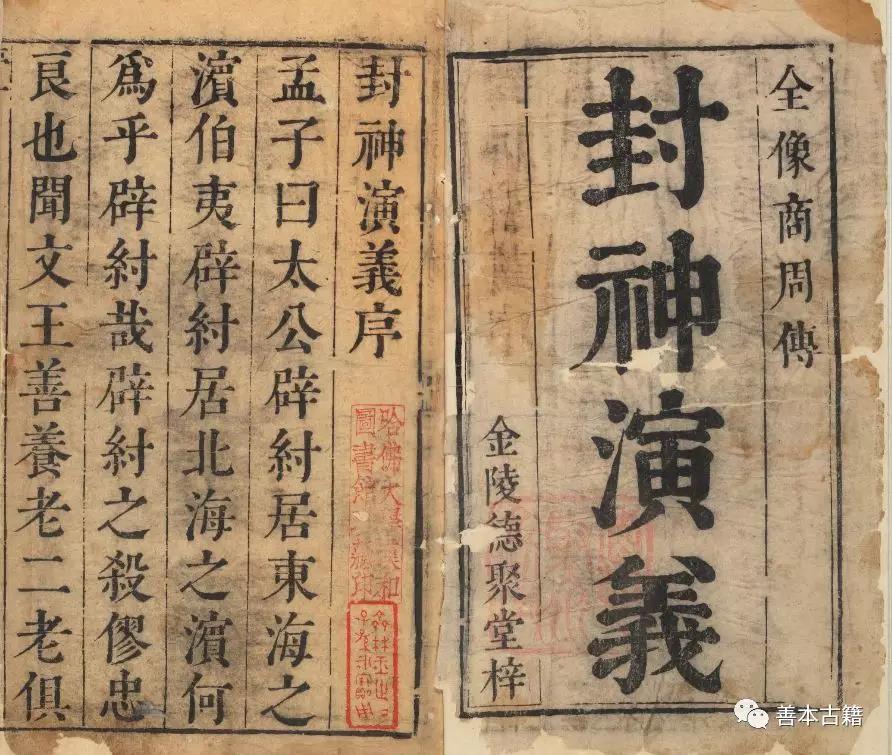 全像商周傳
封神演義
金陵德聚堂梓
封神演義序
孟子曰太公辟紂居東海之
濵伯夷辟紂居北海之濵何
爲乎辟紂哉辟紂之殺僇忠
良也聞文王善養老二老俱
哈佛大學漢和
圖書館
善本古籍